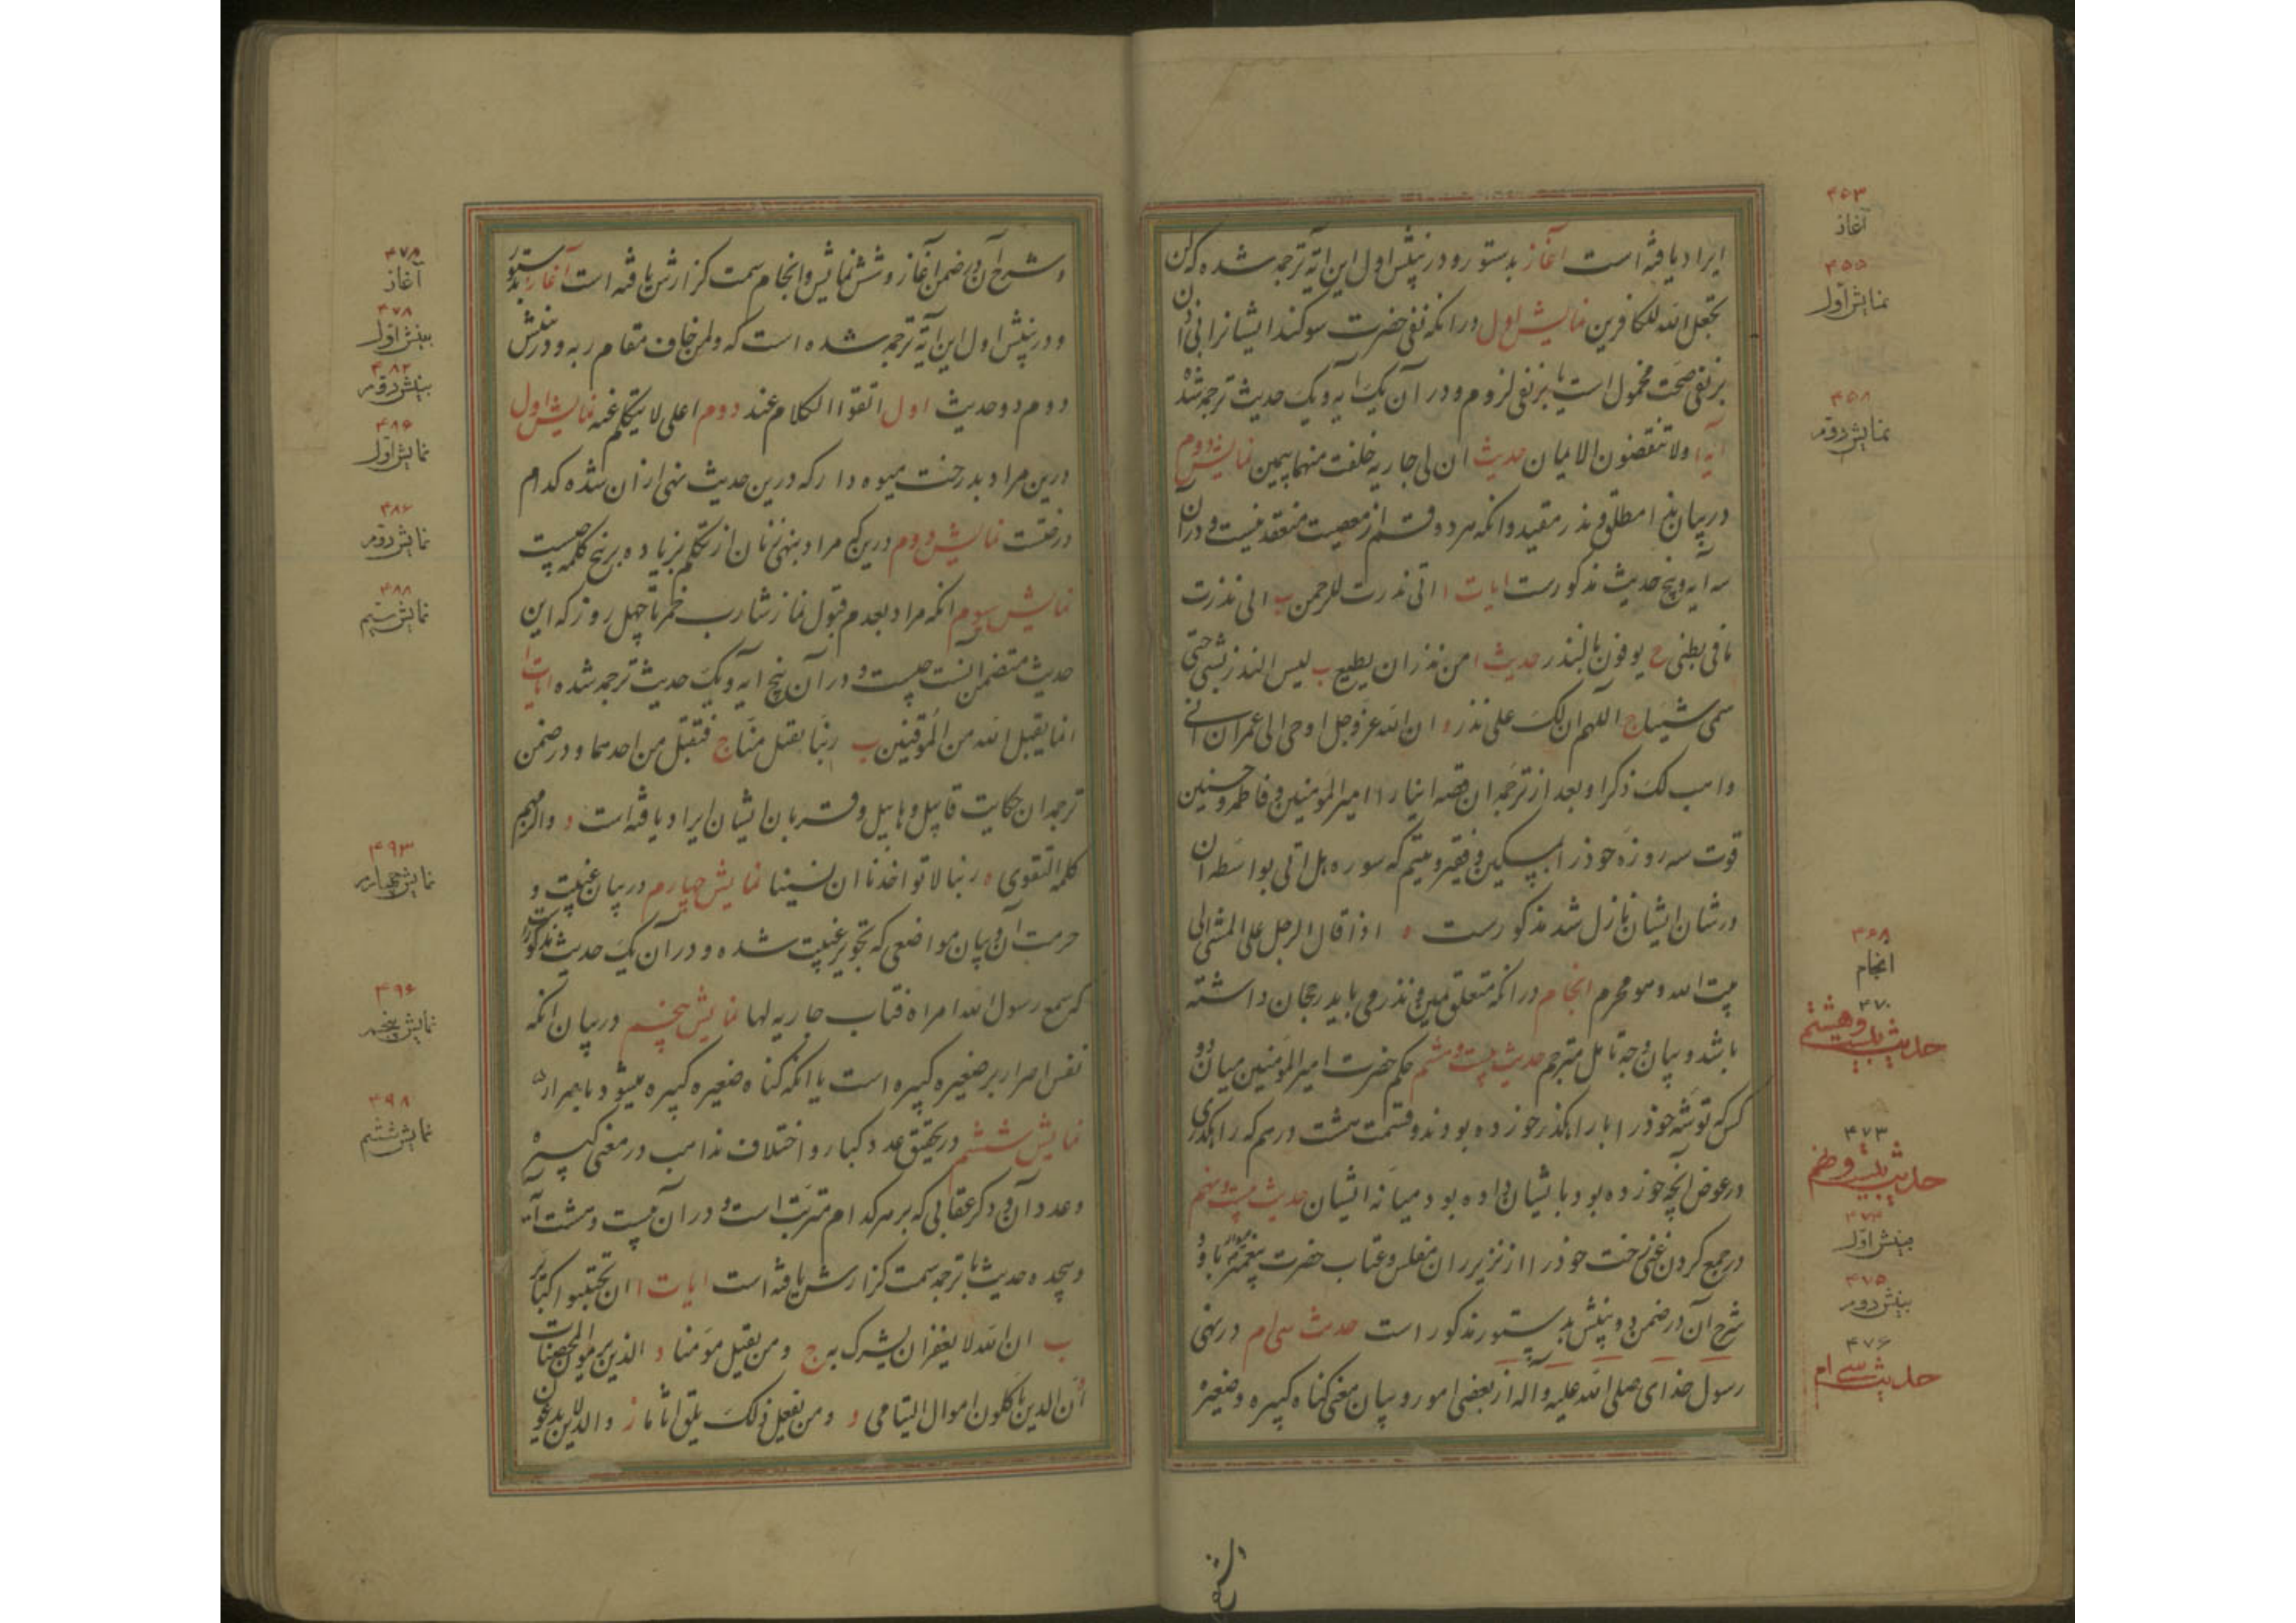 ایراد یافته است آغاز بدستور و در بینش اول این آیه ترجمه شده که لن
یجعل الله للکافرین نمایش اول در انکه نفی حضرت سوکند ایشانرا
بر نفی صحت محمول است یا بر نفی لزوم و در آن یک ایه و یک حدیث ترجمه شد
آیه ا ولا تنقضوا الایمان حدیث ان لی جاریه خلفت منها بیمین نمایش دوم
در بیان نذر مطلق و نذر مقید و انکه هر دو قسم از معصیت منعقد نیست و در آن
سه ایه و پنج حدیث مذکورست ایات ا انی نذرت للرحمن ب انی نذرت
ما فی بطنی ج یوفون بالنذر حدیث ا من نذر ان یطیع ب لیس النذر بشیء حتی
سمی شیئا ج اللهم ان لک علی نذر د ان الله عز و جل اوحی الی عمران انی
واهب لک ذکرا و بعد از ترجمه ان قصه ایثار امیر المؤمنین و فاطمه و حسنین
قوت سه روزه خود را بمسکین و فقیر و یتیم که سوره هل اتی بواسطه ان
در شان ایشان نازل شد مذکورست ه اذا قال الرجل علی المشی الی
بیت الله و هو محرم انجام در انکه متعلق یمین و نذر می باید رجحان داشته
باشد و بیان وجه تامل مترجم حدیث بیست و هشتم حکم حضرت امیر المؤمنین میان دو
کس که توشه خود را با راهکذر خورده بودند و قسمت هشت درهم که راهکذری
در عوض آنچه خورده بود بایشان داده بود میانه ایشان حدیث بیست و نهم
در جمع کردن غنی رخت خود را از زیر ران مفلس و عتاب حضرت پیغمبر با و
شرح آن در ضمن دو بینش بدستور مذکور است حدیث سی ام در نهی
رسول خدای صلی الله علیه و اله از بعضی امور و بیان معنی کناه کبیره و صغیره
۴۵۳
آغاذ
۴۵۵
نمایش اول
۴۵۸
نمایش دوم
۴۶۸
انجام
۴۷۰
حدیث بیست و هشتم
۴۷۳
حدیث بیست و نهم
۴۷۴
بینش اول
۴۷۵
بینش دوم
۴۷۶
حدیث سی ام
و شرح آن در ضمن آغاز و شش نمایش و انجام سمت کزارش یافته است آغاز بدستور
و در بینش اول این آیه ترجمه شده است که ولمن خاف مقام ربه و در بینش
دوم دو حدیث اول اتقوا الکلام عند دوم اعلی لا یتکلم نمایش اول
درین مراد بدرخت میوه دار که درین حدیث نهی از ان شده کدام
درختست نمایش دوم درین که مراد بنهی زنان از تکلم بزیاده بر پنج کلمه چیست
نمایش سوم انکه مراد بعدم قبول نماز شارب خمر تا چهل روز که این
حدیث متضمن آنست چیست و در آن پنج ایه و یک حدیث ترجمه شده ایات ا
انما یقبل الله من المتقین ب ربنا تقبل منا ج فتقبل من احدهما و در ضمن
ترجمه ان حکایت قابیل و هابیل و قربان ایشان ایراد یافته است د والزمهم
کلمة التقوی ه ربنا لا تواخذنا ان نسینا نمایش چهارم در بیان غیبت و
حرمت آن و بیان مواضعی که تجویز غیبت شده و در آن یک حدیث مذکورست
که سمع رسول الله امراه فتاب جاریه لها نمایش پنجم در بیان انکه
نفس اصرار بر صغیره کبیره است یا انکه کناه صغیره کبیره میشود باصرار
نمایش ششم در تحقیق عدد کبایر و اختلاف مذاهب در معنی کبیره
و عدد آن و ذکر عقابی که بر هر کدام مترتبست و در آن بیست و هشت آیه
و هیجده حدیث با ترجمه سمت کزارش یافته است ایات ا ان تجتنبوا کبایر
ب ان الله لا یغفر ان یشرک به ج ومن یقتل مؤمنا د الذین یرمون المحصنات
ه ان الذین یاکلون اموال الیتامی و ومن یفعل ذلک یلق اثاما ز والذین لا یدعون
۴۷۸
آغاذ
۴۷۸
بینش اول
۴۸۲
بینش دوم
۴۸۵
نمایش اول
۴۸۷
نمایش دوم
۴۸۸
نمایش سیم
۴۹۳
نمایش چهارم
۴۹۶
نمایش پنجم
۴۹۸
نمایش ششم